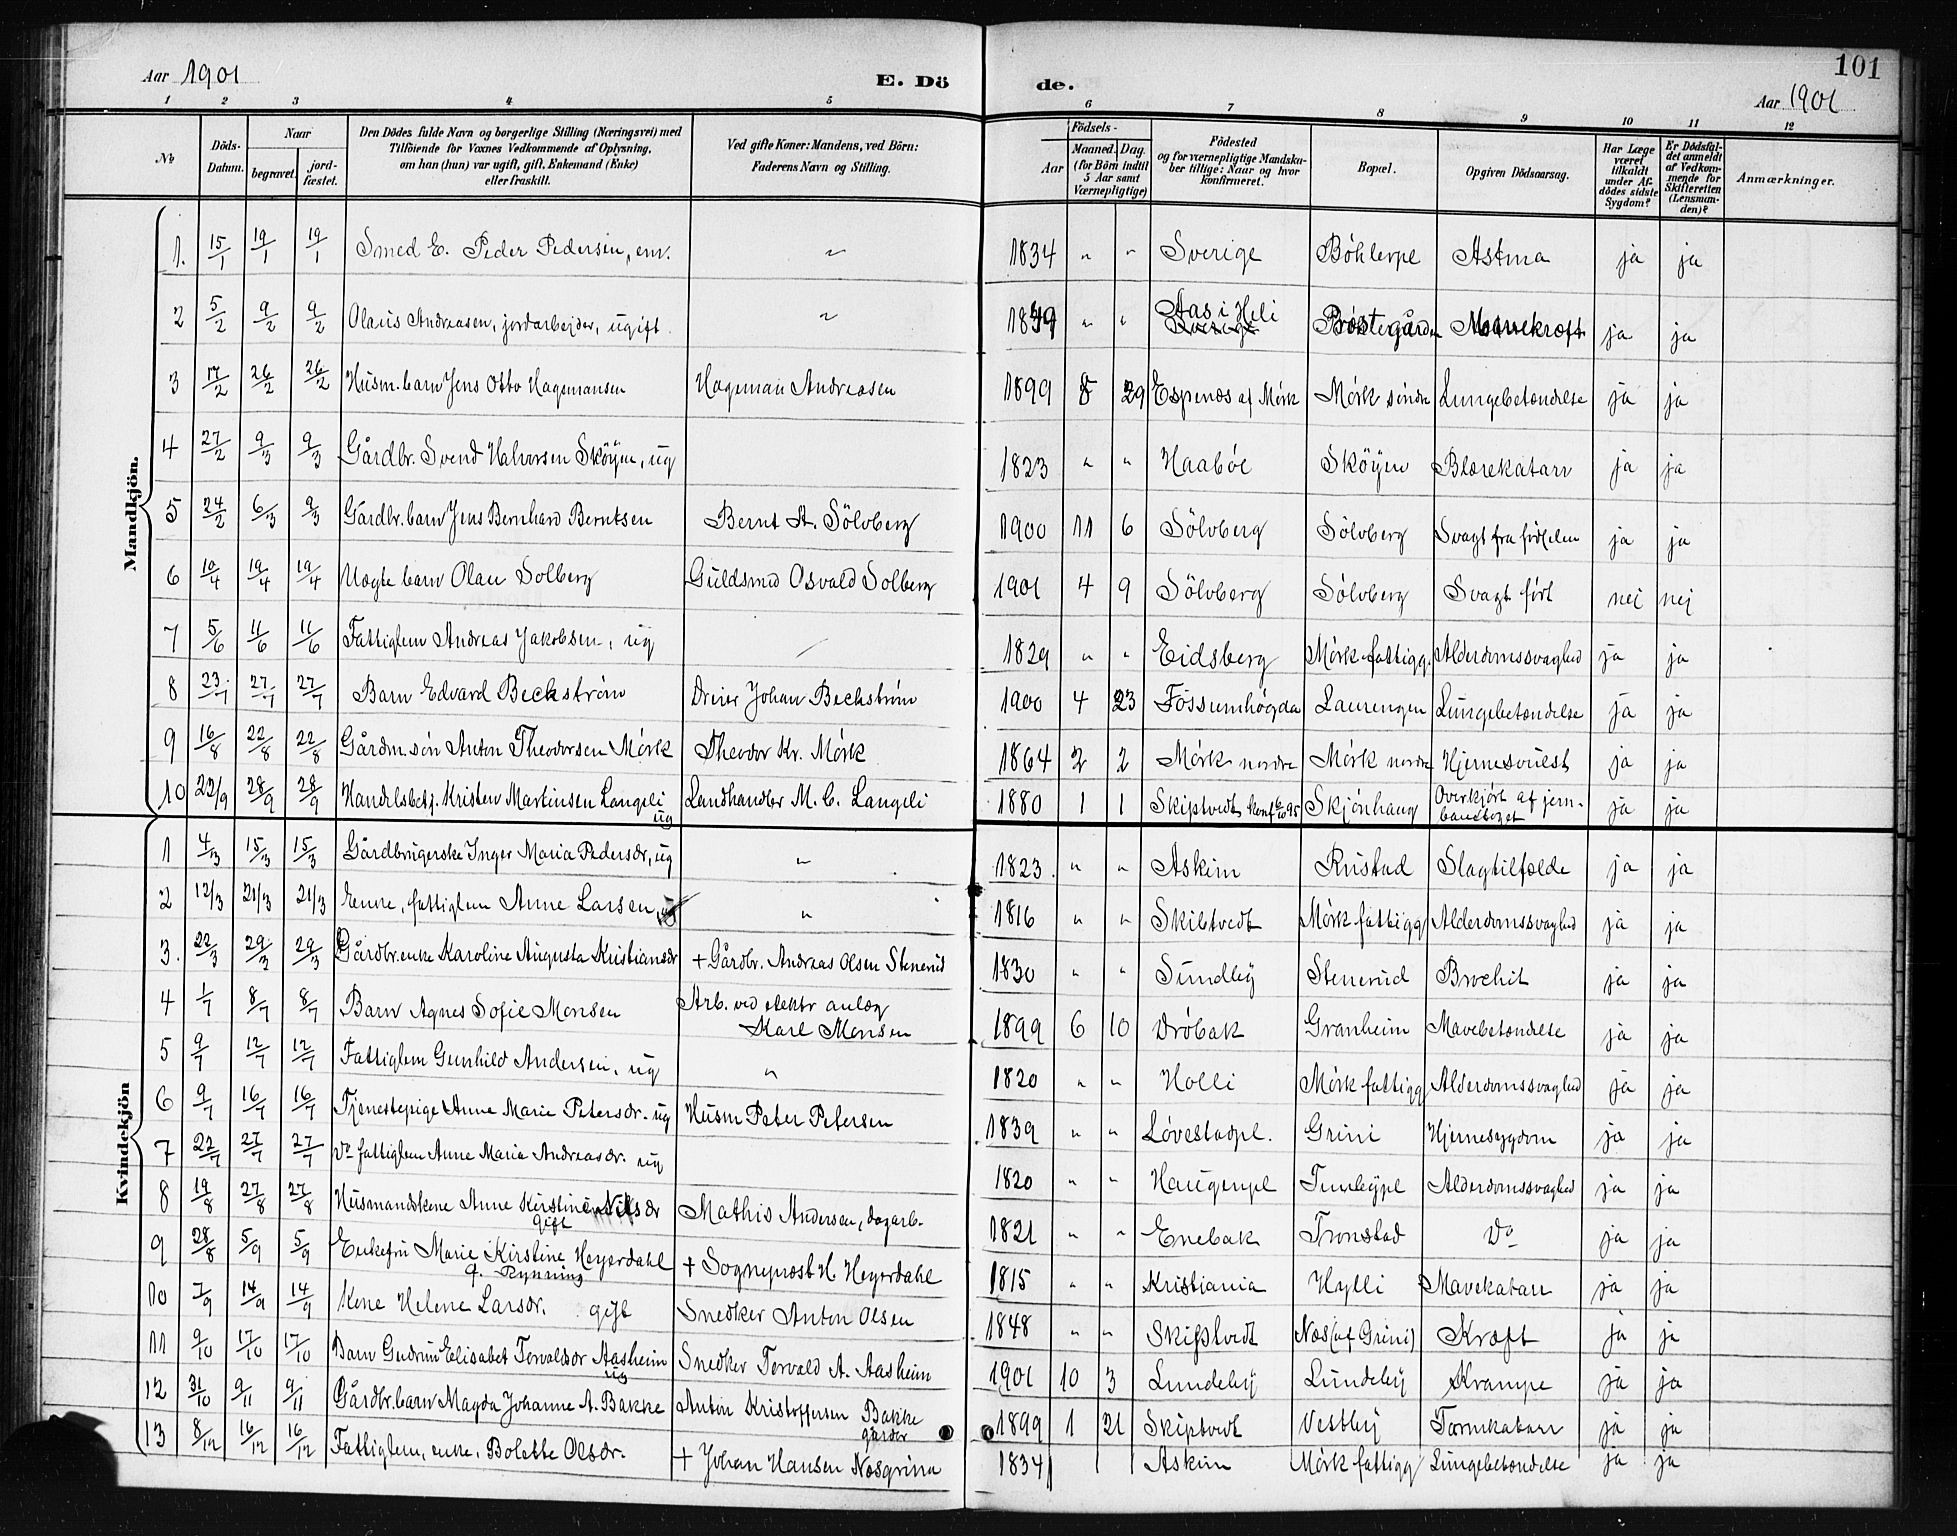 Aar 1901
E. Dö
de.
101
Aar 1901
1 2 3 4 5 6 7 8 9 10 11 12
№
Döds-Datum.
Naar
begravet.
jord-fæstet.
Den Dödes fulde Navn og borgerlige Stilling (Næringsvei) med
Tilföiende for Voxnes Vedkommende af Oplysning,
om han (hun) var ugift, gift, Enkemand (Enke)
eller fraskilt.
Ved gifte Koner: Mandens, ved Börn:
Faderens Navn og Stilling.
Födsels-
Aar
Maaned. Dag.
(for Börn indtil
5 Aar samt
Værnepligtige)
Födested
og for værnepligtige Mandska-
ber tillige: Naar og hvor
konfirmeret.
Bopæl.
Opgiven Dödsaarsag.
Har Læge
været
tilkaldt
under Af-
dödes sidste
Sygdom?
Er Dödsfal-
det anmeldt
af Vedkom-
mende for
Skifteretten
(Lensman-
den)?
Anmærkninger.
Mandkjön.
1. 15/1 19/1 19/1 Smed E. Peder Pedersen, em. " 1834 " " Sverige Böhlerpl Astma ja ja
2 5/2 9/2 9/2 Olaus Andreasen, jordarbejder, ugift " 1849 " " Aas i Heli Prestegården Mavekræft ja ja
3 17/2 26/2 26/2 Husm. barn Jens Otto Hagemansen Hageman Andreasen 1899 8 29 Espenes af Mörk Mörk söndre Lungebetændelse ja ja
4 27/2 9/3 9/3 Gårdbr. Svend Halvorsen Sköyen, ug 1823 " " Haaböl Sköyen Blærekatarr ja ja
5 24/2 6/3 9/3 Gårdbr. barn Jens Bernhard Berntsen Bernt A. Sölvberg 1900 11 6 Sölvberg Sölvberg Svagt fra födselen ja ja
6 10/4 19/4 19/4 Uægte barn Olav Solberg Guldsmed Osvald Solberg 1901 4 9 Sölvberg Sölvberg Svagt födt nej nej
7 5/6 11/6 11/6 Fattiglem Andreas Jakobsen, ug 1829 " " Eidsberg Mörk fattigg. Alderdomssvaghed ja ja
8 23/7 27/7 27/7 Barn Edvard Beckström Dreier Johan Beckström 1900 4 23 Fossumhögda Laurengen Lungebetændelse ja ja
9 16/8 22/8 22/8 Gårdm. sön Anton Theodorsen Mörk Theodor Kr. Mörk 1864 2 2 Mörk nordre Mörk nordre Hjernesvulst ja ja
10 22/9 28/9 28/9 Handelsbetj. Kristen Martinsen Langeli ug Landhandler M. C. Langeli 1880 1 1 Skiptvedt Konf 6/10 95 Skjönhaug Overkjört af jern-
banetoget ja ja
Kvindekjön
1 4/3 15/3 15/3 Gårdbrugerske Inger Maria Pedersdr, ug " 1823. " " Askim Rustad Slagtilfælde ja ja
2 12/3 21/3 21/3 Enke, fattiglem Anne Larsen " 1816 " " Skibtvedt Mörk fattigg Alderdomssvaghed ja ja
3. 22/3 29/3 29/3 Gårdbr. enke Karoline Augusta Kristiansdr + Gårdbr. Andreas Olsen Stenerud 1830 " " Sundby Stenerud Brochit ja ja
4 1/7 8/7 8/7 Barn Agnes Sofie Monsen Arb. ved elektr anlæg
Karl Monsen 1899 6 10 Dröbak Granheim Mavebetændelse ja ja
5 9/7 12/7 12/7 Fattiglem Gunhild Andersen, ug " 1820 " " Holli Mörk fattigg Alderdomssvaghed ja ja
6 9/7 16/7 16/7 Tjenestepige Anne Marie Petersdr. ug Husm Peter Petersen 1839 " " Lövestadpl. Grini Hjernesygdom ja ja
7 22/7 27/7 27/7 Do fattiglem Anne Maria Andreasdr. ug 1820 " " Haugenpl Tunbypl Alderdomssvaghed ja ja
8 19/8 27/8 27/8 Husmandskone Anne Kirstine Nilsdr
gift Mathis Andersen, dagarb. 1821 " " Enebak Tronstad Do ja ja
9 28/8 5/9 5/9 Enkefru Marie Kirstine Heyerdahl
f. Rynning + Sogneprest H. Heyerdahl 1815 " " Kristiania Hylli Mavekatarr ja ja
10 7/9 14/9 14/9 Kone Helene Larsdr. gift Snedker Anton Olsen 1848 " " Skiptvedt Næs (af Grini) Kræft ja ja
11 9/10 17/10 17/10 Barn Gudrun Elisabet Torvaldsdr Aasheim
ug Snedker Torvald A. Aasheim 1901 10 3 Lundeby Lundeby Krampe ja ja
12 31/10 9/11 9/11 Gårdbr. barn Magda Johanne A. Bakke Anton Kristoffersen Bakke 1899 1 21 Skiptvedt Vestby Tarmkatarr ja ja
13 8/12 16/12 16/12 Fattiglem, enke, Bolette Olsdr. + Johan Hansen Næsgrina 1834 Askim Mörk fattigg Lungebetændelse ja ja